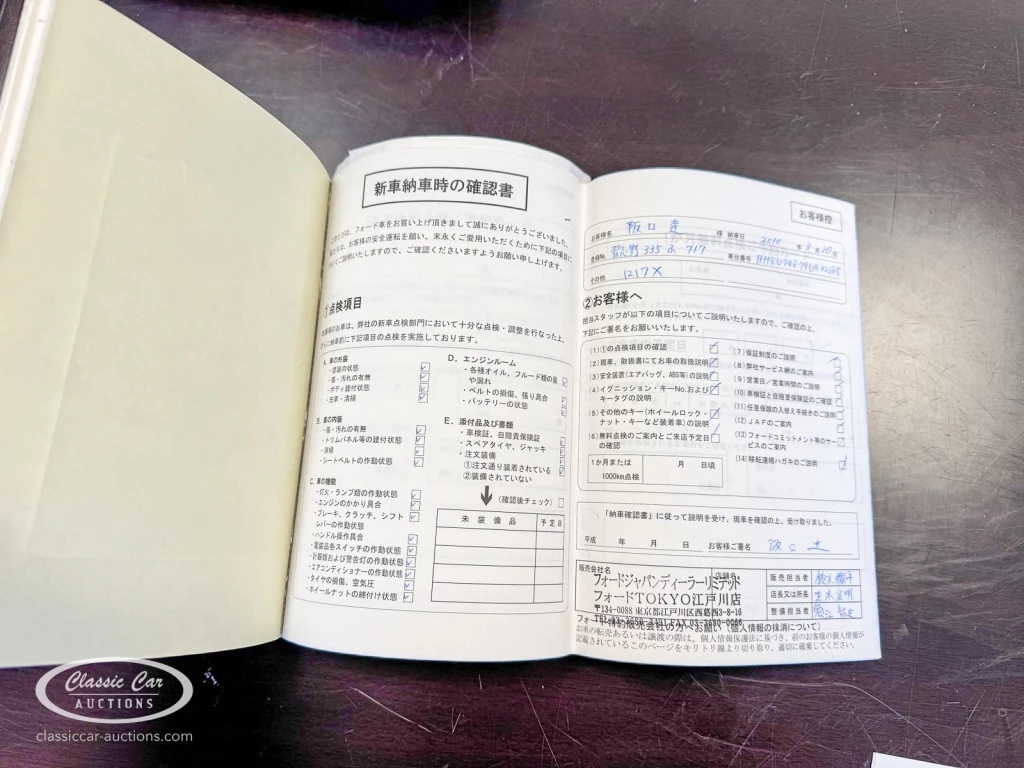 新車納車時の確認書
このたびは、フォード車をお買い上げ頂きまして誠にありがとうございました。
お客様の安全運転を願い、末永くご愛用いただくために下記の項目に
ついてご説明いたしますので、ご確認くださいますようお願い申し上げます。
①点検項目
お客様のお車は、弊社の新車点検部門において十分な点検・調整を行なった上、
さらに納車前に下記項目の点検を実施しております。
A. 車の外装
・塗装の状態
・傷・汚れの有無
・ボディ建付状態
・洗車・清掃
B. 車の内装
・傷・汚れの有無
・トリムパネル等の建付状態
・清掃
・シートベルトの作動状態
C. 車の機能
・灯火・ランプ類の作動状態
・エンジンのかかり具合
・ブレーキ、クラッチ、シフト
レバーの作動状態
・ハンドル操作具合
・電装品各スイッチの作動状態
・計器類および警告灯の作動状態
・エアコンディショナーの作動状態
・タイヤの損傷、空気圧
・ホイールナットの締付け状態
D. エンジンルーム
・各種オイル、フルード類の量
や漏れ
・ベルトの損傷、張り具合
・バッテリーの状態
E. 添付品及び書類
・車検証、自賠責保険証
・スペアタイヤ、ジャッキ
・注文装備
①注文通り装着されている
②装備されていない
(確認後チェック)
未装備品 予定日
お客様控
お客様名 阪口 様 納車日 2010 年 9 月 10 日
登録No. 習志野 335 ふ 717 車台番号
その他 1217X
②お客様へ
担当スタッフが以下の項目についてご説明いたしますので、ご確認の上、
下記にご署名をお願いいたします。
(1) ①の点検項目の確認
(2) 現車、取扱書にてお車の取扱説明
(3) 安全装置(エアバッグ、ABS等)の説明
(4) イグニッション・キーNo.および
キータグの説明
(5) その他のキー(ホイールロック・
ナット・キーなど装着車)の説明
(6) 無料点検のご案内とご来店予定日
の確認
1か月または
1000km点検 月 日頃
(7) 保証制度のご説明
(8) 弊社サービス網のご案内
(9) 営業日／営業時間のご説明
(10) 車検証と自賠責保険証のご確認
(11) 任意保険の入替え手続きのご説明
(12) JAFのご案内
(13) フォードコミットメント等のサー
ビスのご案内
(14) 移転連絡ハガキのご説明
「納車確認書」に従って説明を受け、現車を確認の上、受け取りました。
平成 年 月 日 お客様ご署名 阪口
販売会社名 店舗名
フォードジャパンディーラーリミテッド
フォードTOKYO江戸川店
〒134-0088 東京都江戸川区西葛西3-8-16
販売担当者 鈴木
店長又は所長
整備担当者
フォード特約販売会社の方へお願い (個人情報の抹消について)
お車の転売あるいは譲渡の際は、個人情報保護法に基づき、前のお客様の個人情報が
記載されているこのページをキリトリ線より切り取り、適切に破棄してください。
Classic Car
AUCTIONS
classiccar-auctions.com